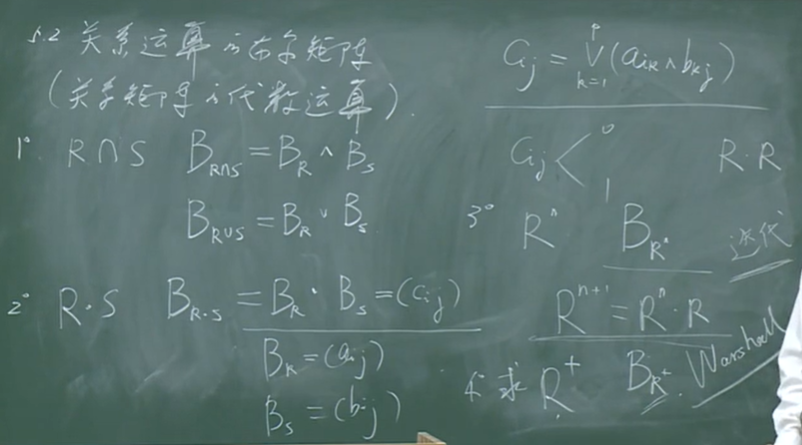 5.2 关系运算的布尔矩阵
(关系矩阵的代数运算).
1° R∩S B_{R∩S} = B_R ∧ B_S
B_{R∪S} = B_R ∨ B_S
2° R·S B_{R·S} = B_R · B_S = (c_{ij})
B_R = (a_{ij})
B_S = (b_{ij})
c_{ij} = ∨_{k=1}^{p} (a_{ik} ∧ b_{kj})
c_{ij} < 0 1 R·R
3° R^n B_{R^n} 迭代
R^{n+1} = R^n · R
4° 求 R^+ B_{R^+}. Warshall